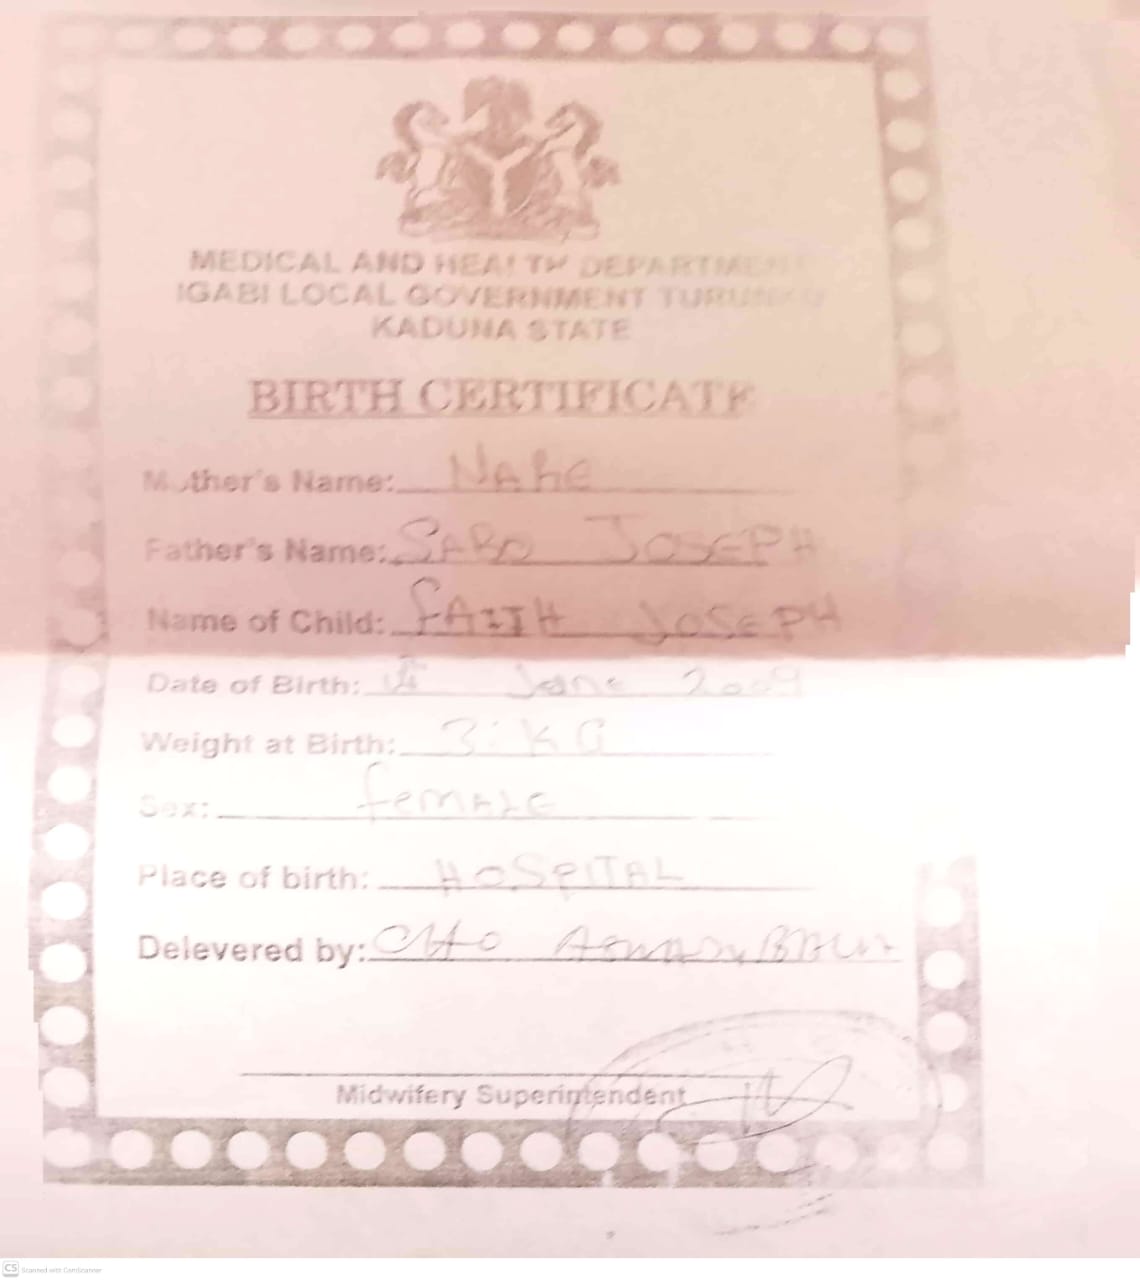 MEDICAL AND HEALTH DEPARTMENT
IGABI LOCAL GOVERNMENT
KADUNA STATE
BIRTH CERTIFICATE
Mother's Name: NAHE
Father's Name: SABO JOSEPH
Name of Child: FAITH JOSEPH
Date of Birth: June 2009
Weight at Birth: 3: KG
Sex: female
Place of birth: HOSPITAL
Delevered by: CHO
Midwifery Superintendent
CS Scanned with CamScanner